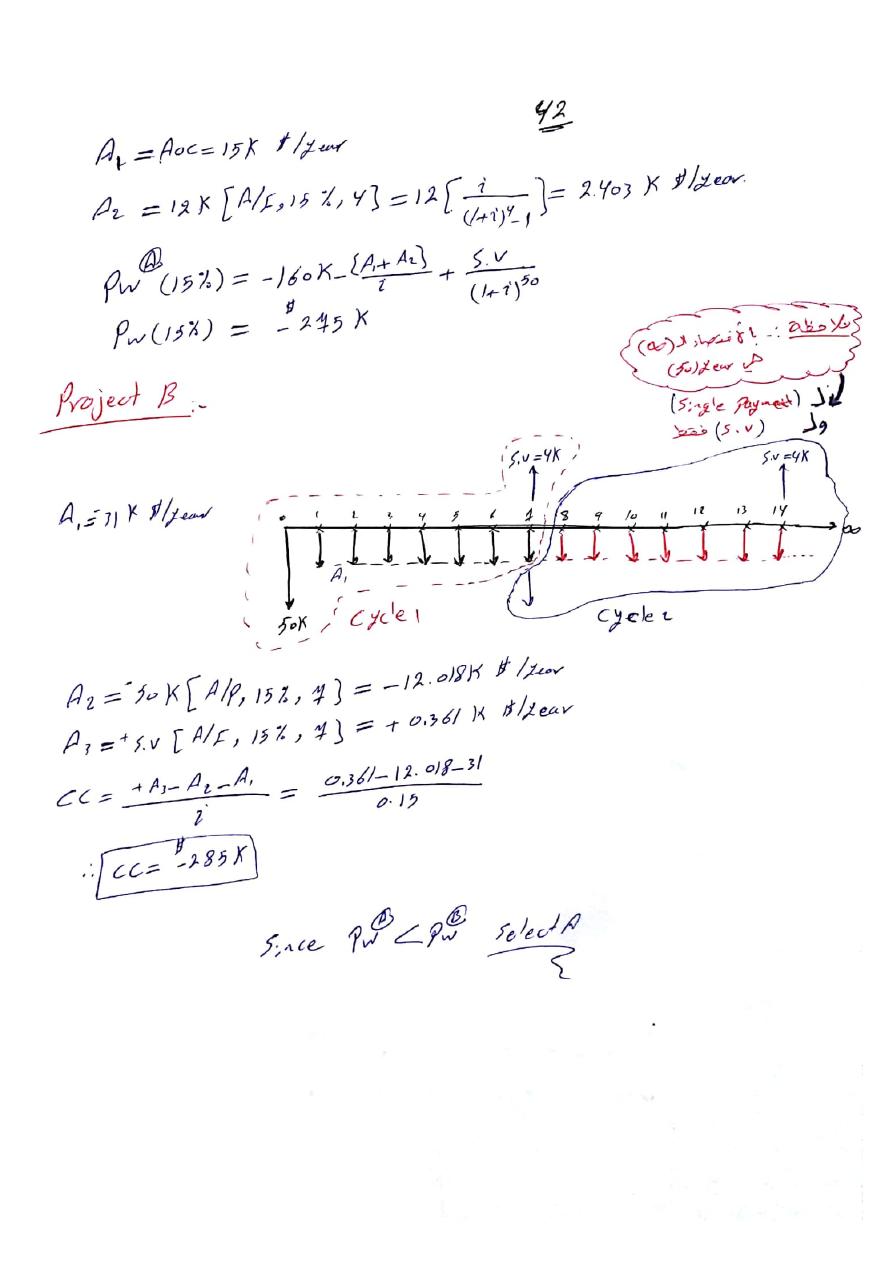 42
A₁ = AOC = 15K $/year
A₂ = 12K [A/F, 15 %, 4] = 12 [ i / (1+i)⁴-1 ] = 2.403 K $/year.
PW Ⓐ (15%) = -160K - {A₁+A₂} / i + S.V / (1+i)⁵⁰
PW (15%) = $ -275 K
ملاحظة :-
(∞)
هي (50) year
لـ (Single Payment)
ولـ (S.V) فقط
Project B :-
S.V=4K
S.V=4K
A₁ = 31 K $/year
0 1 2 3 4 5 6 7 8 9 10 11 12 13 14 ∞
A₁
50K
Cycle 1
Cycle 2
A₂ = -50 K [A/P, 15%, 7] = -12.018K $/year
A₃ = +S.V [A/F, 15%, 7] = + 0.361 K $/year
CC = +A₃-A₂-A₁ / i = 0.361-12.018-31 / 0.15
∴ CC= $ -285 K
Since PW Ⓐ < PW Ⓑ Select A